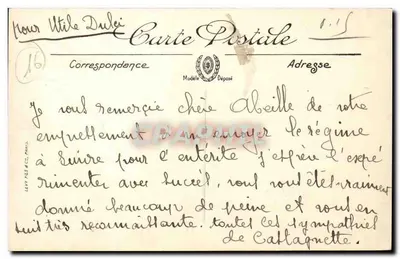 pour Utile Dulci
1.15
16
Carte Postale
Correspondance
Adresse
Modèle Déposé
LEVY FILS & CIE, PARIS
Je vous remercie chère Abeille de votre
empressement à m'envoyer le régime
à suivre pour l'entérite j'espère l'expé
rimenter avec succès, vous vous êtes vraiment
donné beaucoup de peine et vous en
suis très reconnaissante. toutes les sympathies
de Castagnette.